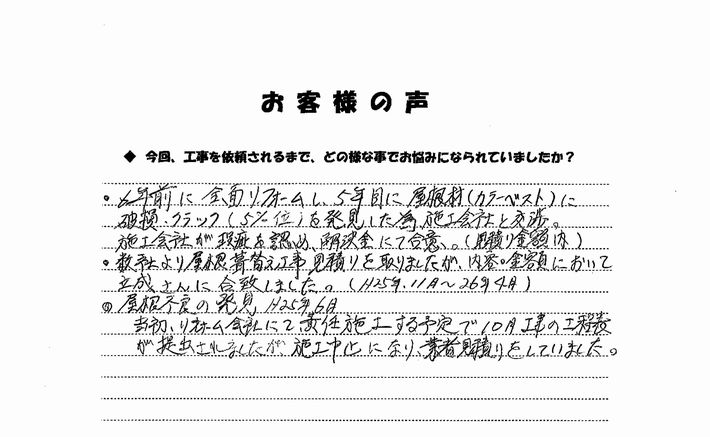 お客様の声
◆ 今回、工事を依頼されるまで、どの様な事でお悩みになられていましたか？
・6年前に全面リフォームし、5年目に屋根材(カラーベスト)に
破損・クラック(5%位)を発見した為、施工会社と交渉。
施工会社が瑕疵を認め、解決金にて合意。(見積り金額内)
・数社より屋根葺替え工事見積りを取りましたが、内容・金額において
立成さんに合致しました。(H25年.11月～26年4月)
◎屋根不良の発見 H25年6月
当初、リフォーム会社にて責任施工する予定で10月工事の工程表
が提出されましたが、施工中止になり、業者見積りをしていました。